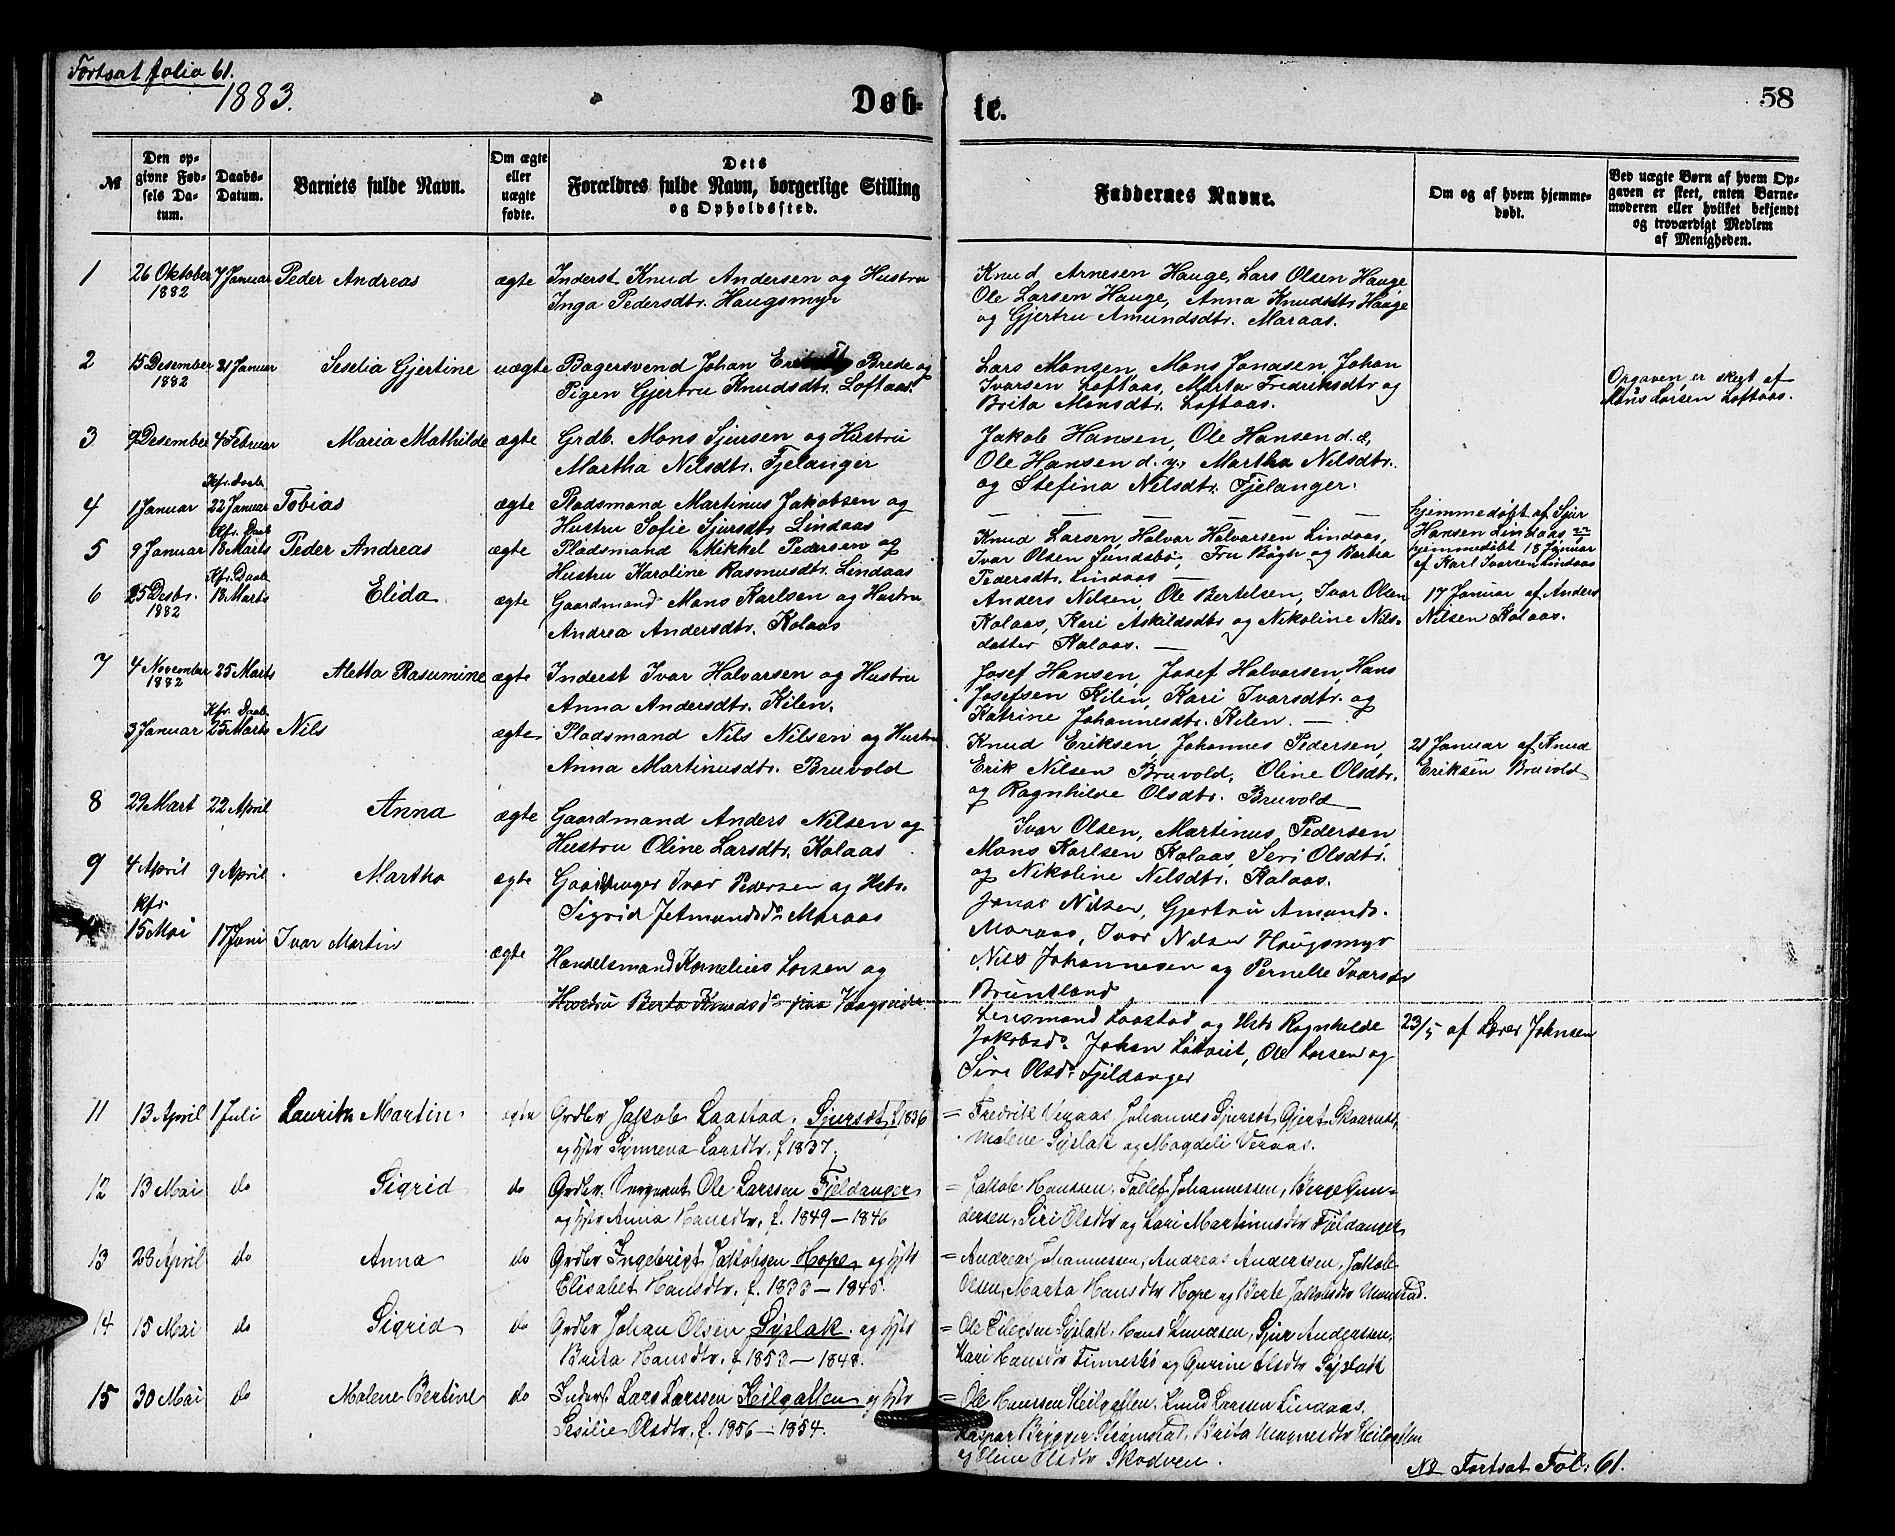 Fortsat folio 61.
1883.
Døb=
te.
58
№
Den op-
givne Fød-
sels Da-
tum.
Daabs-
Datum.
Barnets fulde Navn.
Om ægte
eller
uægte
fødte.
Dets
Forældres fulde Navn, borgerlige Stilling
og Opholdssted.
Faddernes Navne.
Om og af hvem hjemme-
døbt.
Ved uægte Børn af hvem Op-
gaven er skeet, enten Barne-
moderen eller hvilket bekjendt
og troværdigt Medlem
af Menigheden.
1
26 Oktober
1882
7 Januar
Peder Andreas
ægte
Inderst Knud Andersen og Hustru
Inga Pedersdtr. Haugsmyr
Knud Arnesen Hauge, Lars Olsen Hauge
Ole Larsen Hauge, Anna Knudsdtr Hauge
og Gjertru Amundsdtr. Maraas.
2
15 Desember
1882
21 Januar
Seselia Gjertine
uægte
Bagersvend Johan Brede og
Pigen Gjertru Knudsdtr. Loftaas.
Lars Monsen, Mons Jonasen, Johan
Ivarsen Loftaas, Marta Fredriksdtr og
Brita Monsdtr. Loftaas.
Opgaven er skeet af
Mons Larsen Loftaas.
3
9 Desember
4 Februar
Maria Mathilde
ægte
Grdb. Mons Sjursen og Hustru
Martha Nilsdtr. Fjelanger
Jakob Hansen, Ole Hansen d. æ,
Ole Hansen d. y., Martha Nilsdtr.
og Stefina Nilsdtr. Fjelanger.
4
1 Januar
Kfr. Daab
22 Januar
Tobias
ægte
Pladsmand Martinus Jakobsen og
Hustru Sofie Sjursdtr Lindaas
— — — — —
hjemmedøbt af Sjur
Hansen Lindaas
5
9 Januar
Kfr. Daab
18 Marts
Peder Andreas
ægte
Pladsmand Mikkel Pedersen og
Hustru Karoline Rasmusdtr. Lindaas
Knud Larsen, Halvar Halvarsen Lindaas,
Ivar Olsen Sundebø, Fru Bøgh og Berta
Pedersdtr. Lindaas —
hjemmedøbt 18 Januar
af Karl Ivarsen Lindaas
6
25 Desbr.
1882
Kfr. Daab
18 Marts
Elida
ægte
Gaardmand Mons Karlsen og Hustru
Andrea Andersdtr. Kolaas
Anders Nilsen, Ole Bertelsen, Ivar Olsen
Kolaas, Kari Askildsdtr og Nikoline Nils-
datter Kolaas. —
17 Januar af Anders
Nilsen Kolaas.
7
4 November
1882
25 Marts
Aletta Rasumine
ægte
Inderst Ivar Halvarsen og Hustru
Anna Andersdtr. Kilen.
Josef Hansen, Josef Halvorsen, Hans
Josefsen Kilen, Kari Ivarsdtr. og
Katrine Johannesdtr. Kilen. —
3 Januar
Kfr. Daab
25 Marts
Nils
ægte
Pladsmand Nils Nilsen og Hustru
Anna Martinusdtr. Bruvold
Knud Eriksen, Johannes Pedersen,
Erik Nilsen Bruvold, Oline Olsdtr.
og Ragnhilde Olsdtr. Bruvold —
21 Januar af Knud
Eriksen Bruvold
8
29 Mart
22 April
Anna
ægte
Gaardmand Anders Nilsen og
Hustru Oline Larsdtr. Kolaas
Ivar Olsen, Martinus Pedersen
Mons Karlsen Kolaas, Seri Olsdtr.
og Nikoline Nilsdtr. Kolaas.
9
4 April
9 April
Martha
ægte
Gaardbruger Ivar Pedersen og Hstr.
Sigrid Jetmundsdr Maraas
Jonas Nilsen, Gjertru Amunds.
Maraas, Ivar Nilsen Haugsmyr
Nils Johannesen og Pernelle Ivarsdr
Bruntland
Kfr
15 Mai
17 Juni
Ivar Martin
ægte
Handelsmand Kornelius Larsen og
Hustru Berta Knudsdr paa Vaagseidet
Lensmand Laastad og Hstr Ragnhilde
Jakobsdr. Johan Løtveit, Ole Larsen og
Siri Olsdr Fjeldanger
23/5 af Lærer Johnsen
11
13 April
1 Juli
Lauritz Martin
ægte
Grdbr Jakob Laastad. Sjursæt f 1836
og Hstr Synneva Larsdtr. f 1837.
= Fredrik Veraas, Johannes Sjursæt, Gjert Skaarnes,
Malene Syslak og Magdeli Veraas.
12
13 Mai
do
Sigrid
do
Grdbr. Sergeant Ole Larssen Fjeldanger
og Hstr Anna Hansdtr. f. 1849 – 1846
= Jakob Hanssen, Tollef Johannessen, Berge Gun-
dersen, Siri Olsdtr og Kari Martinusdtr Fjeldanger
13
28 April
do
Anna
do
Grdbr Ingebrigt Jakobsen Hope og Hstr
Elisabet Hansdtr. f. 1833 – 1845.
= Andreas Johannessen, Andreas Anderssen, Jakob
Olsen, Marta Hansdtr Hope og Berte Jakobsdtr Monstad.
14
15 Mai
do
Sigrid
do
Grdbr Johan Olsen Syslak og Hstr
Brita Hansdtr. f 1853 – 1848.
= Ole Ellingsen Syslak, Hans Knudsen, Sjur Anderssen,
Kari Hansdtr Finnesbø og Gurine Olsdtr Syslak
15
30 Mai
do
Malene Bertine
do
Inderst Lars Larssen Keilgallen og Hstr
Sesilie Olsdtr. f. 1856 – 1854.
= Ole Hanssen Keilgallen, Knud Larsen Lindaas,
Kaspar Brygger Strømstad, Brita Magnesdtr Keilgallen
og Oline Olsdtr Skodven.
NB Fortsat Fol: 61.